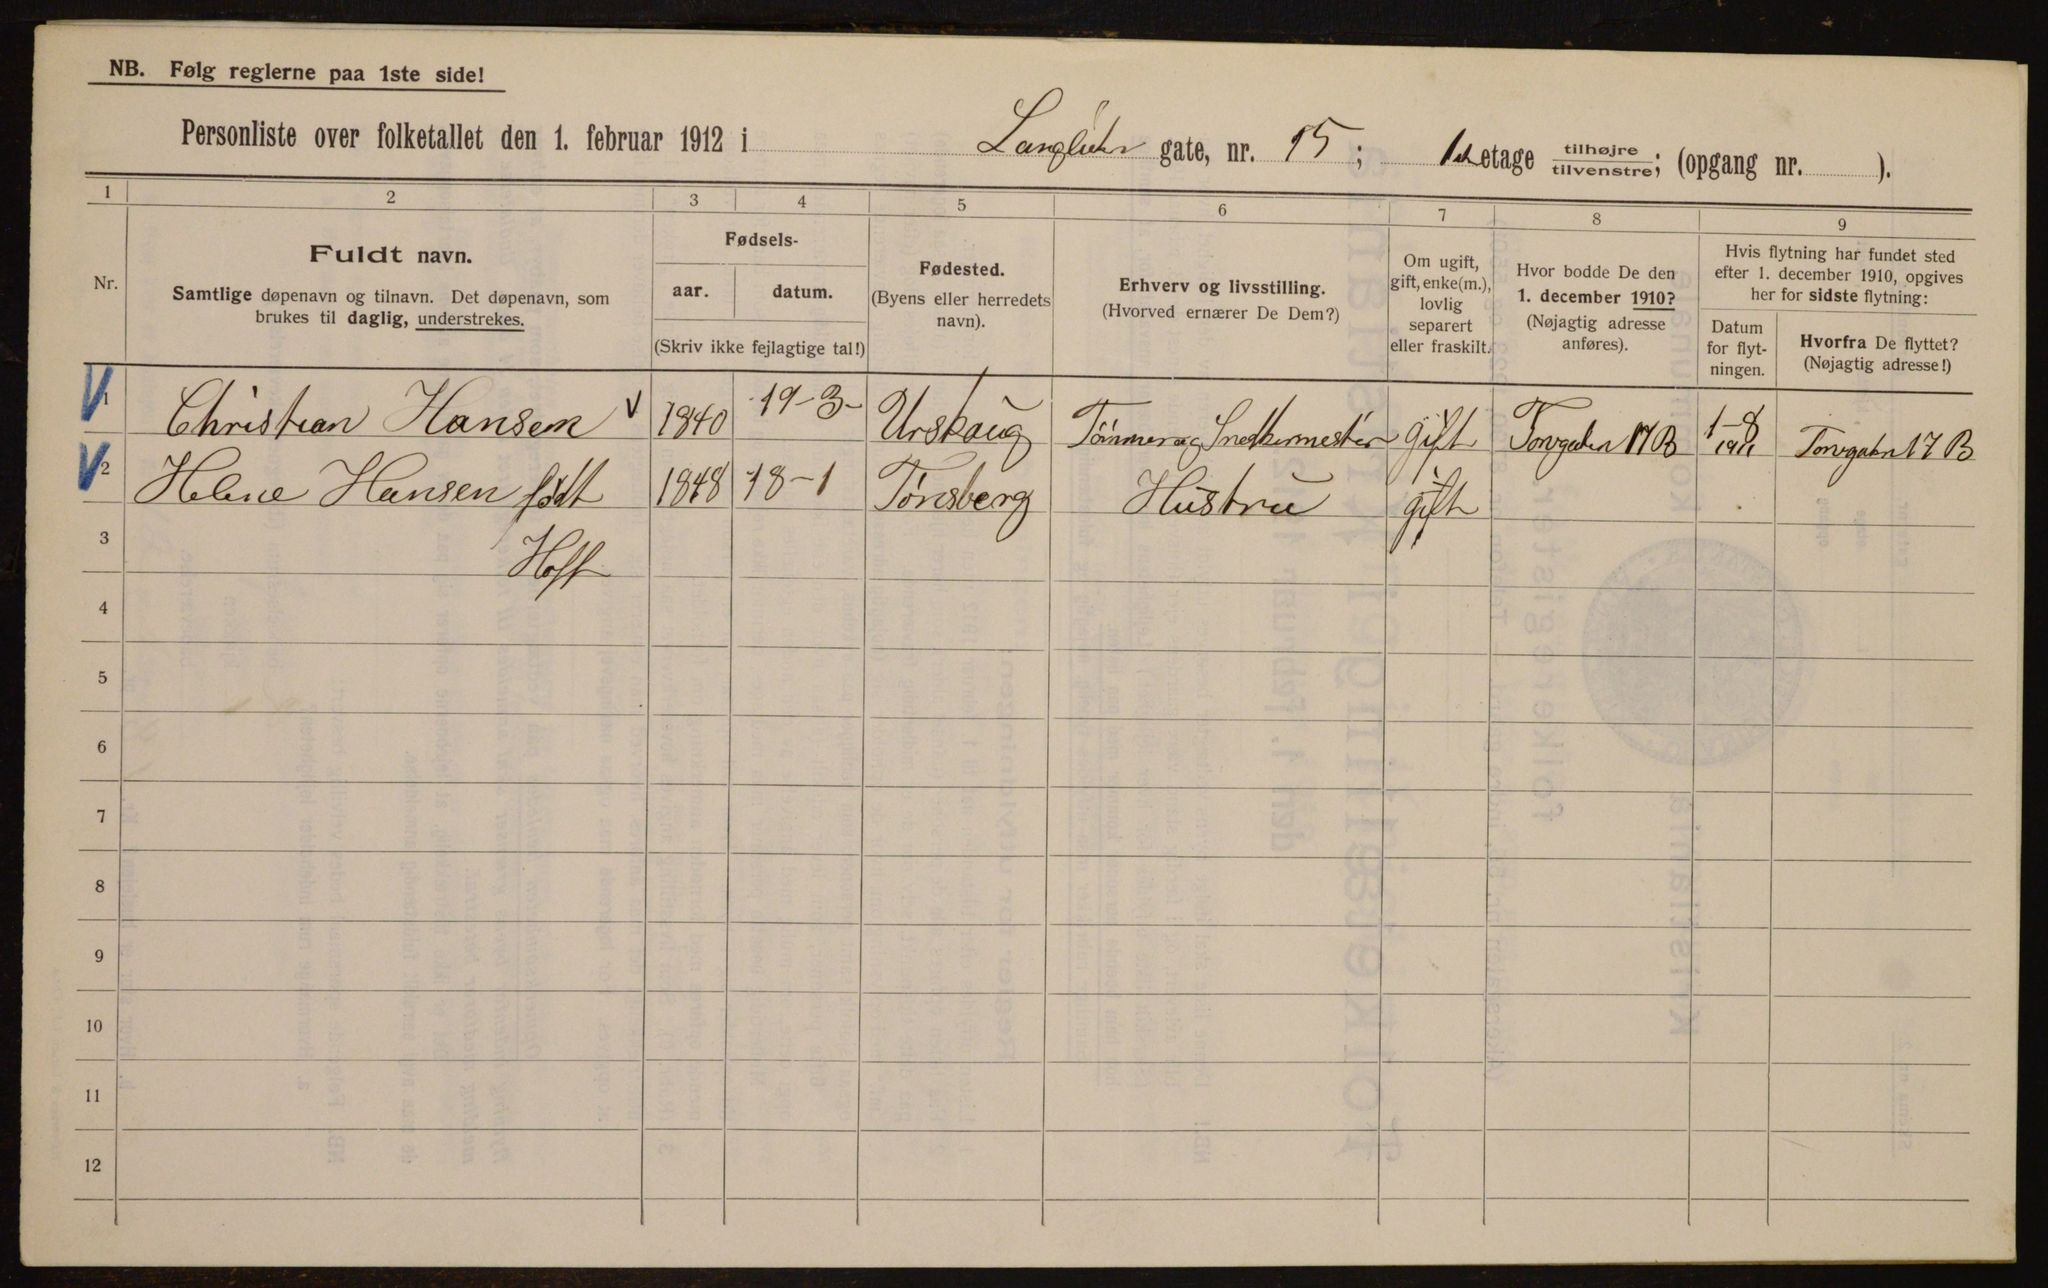 NB. Følg reglerne paa 1ste side!
Personliste over folketallet den 1. februar 1912 i Langliehr gate, nr. 15; 1ste etage tilhøjre / tilvenstre; (opgang nr. ).
1 2 3 4 5 6 7 8 9
Nr.
Fuldt navn.
Samtlige døpenavn og tilnavn. Det døpenavn, som
brukes til daglig, understrekes.
Fødsels-
aar. datum.
(Skriv ikke fejlagtige tal!)
Fødested.
(Byens eller herredets
navn).
Erhverv og livsstilling.
(Hvorved ernærer De Dem?)
Om ugift,
gift, enke(m.),
lovlig
separert
eller fraskilt.
Hvor bodde De den
1. december 1910?
(Nøjagtig adresse
anføres).
Hvis flytning har fundet sted
efter 1. december 1910, opgives
her for sidste flytning:
Datum
for flyt-
ningen.
Hvorfra De flyttet?
(Nøjagtig adresse!)
1 Christian Hansen 1840 19-3- Urskoug Tømmer og Snedkermester gift Torvgaden 17 B 1-8 1911 Torvgaden 17 B
2 Helene Hansen født 1848 18-1 Tønsberg Hustru gift
3 Hoff
4
5
6
7
8
9
10
11
12